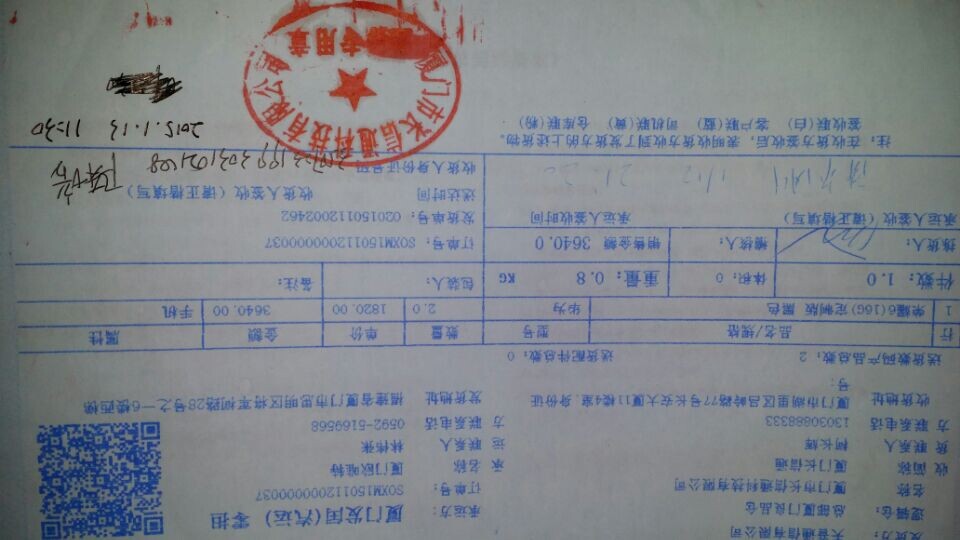 发货方: 天音通信有限公司
承运方: 厦门发国(汽运) 零担
逻辑仓: 总部厦门良品仓
订单号: SOXM15011200000037
名称 厦门市长信通科技有限公司
承 名称 厦门欧唯特
收 简称 厦门长信通
运 联系人 林伟张
货 联系人 柯长辉
方 联系电话 0592-5169568
方 联系电话 13030888333
发货地址 福建省厦门市思明区将军祠路28号之一6楼西梯
收货地址 厦门市湖里区吕岭路77号长安大厦11楼4室.身份证号:
送货数码产品总数: 2 送货配件总数: 0
行 品名/规格 型号 数量 单价 金额 属性
1 荣耀6(16G)定制版 黑色 华为 2.0 1820.00 3640.00 手机
件数: 1.0 体积: 0 重量: 0.8 KG 包装人: 备注:
拣货人: 稽核人: 销售金额 3640.0 订单号: SOXM15011200000037
承运人签收(请正楷填写) 承运人签收时间 发货单号: 0201501120002462
送达时间 收货人签收(请正楷填写)
收货人身份证号码
注: 在收货方签收后,表明收货方收到了发货方的上述货物。
签收联(白) 客户联(蓝) 司机联(黄) 仓库联(粉)
2015.1.13 11:30
厦门市长信通科技有限公司
专用章